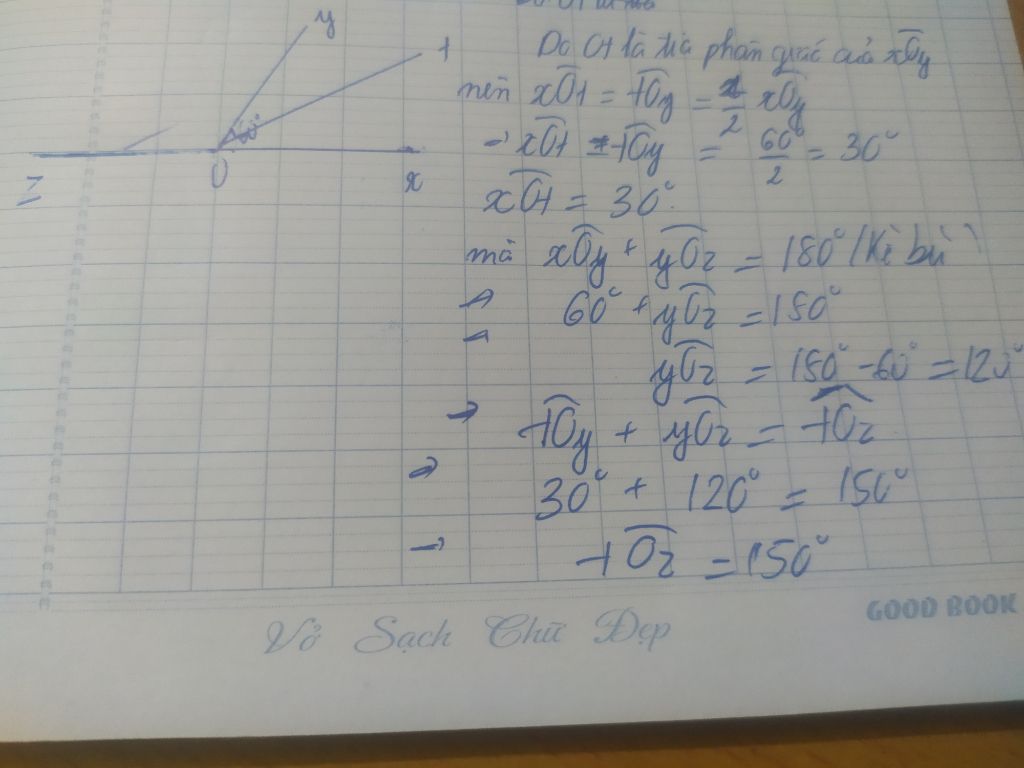 y
t
60°
Z
O
x
Do Ot là tia phân giác của xOy
nên xOt = tOy = 1/2 xOy
→ xOt = tOy = 60°/2 = 30°
xOt = 30°.
mà xOy + yOz = 180° (Kề bù)
60° + yOz = 180°
yOz = 180° - 60° = 120°
→ tOy + yOz = tOz
⇒ 30° + 120° = 150°
→ tOz = 150°
Vở Sạch Chữ Đẹp
GOOD BOOK